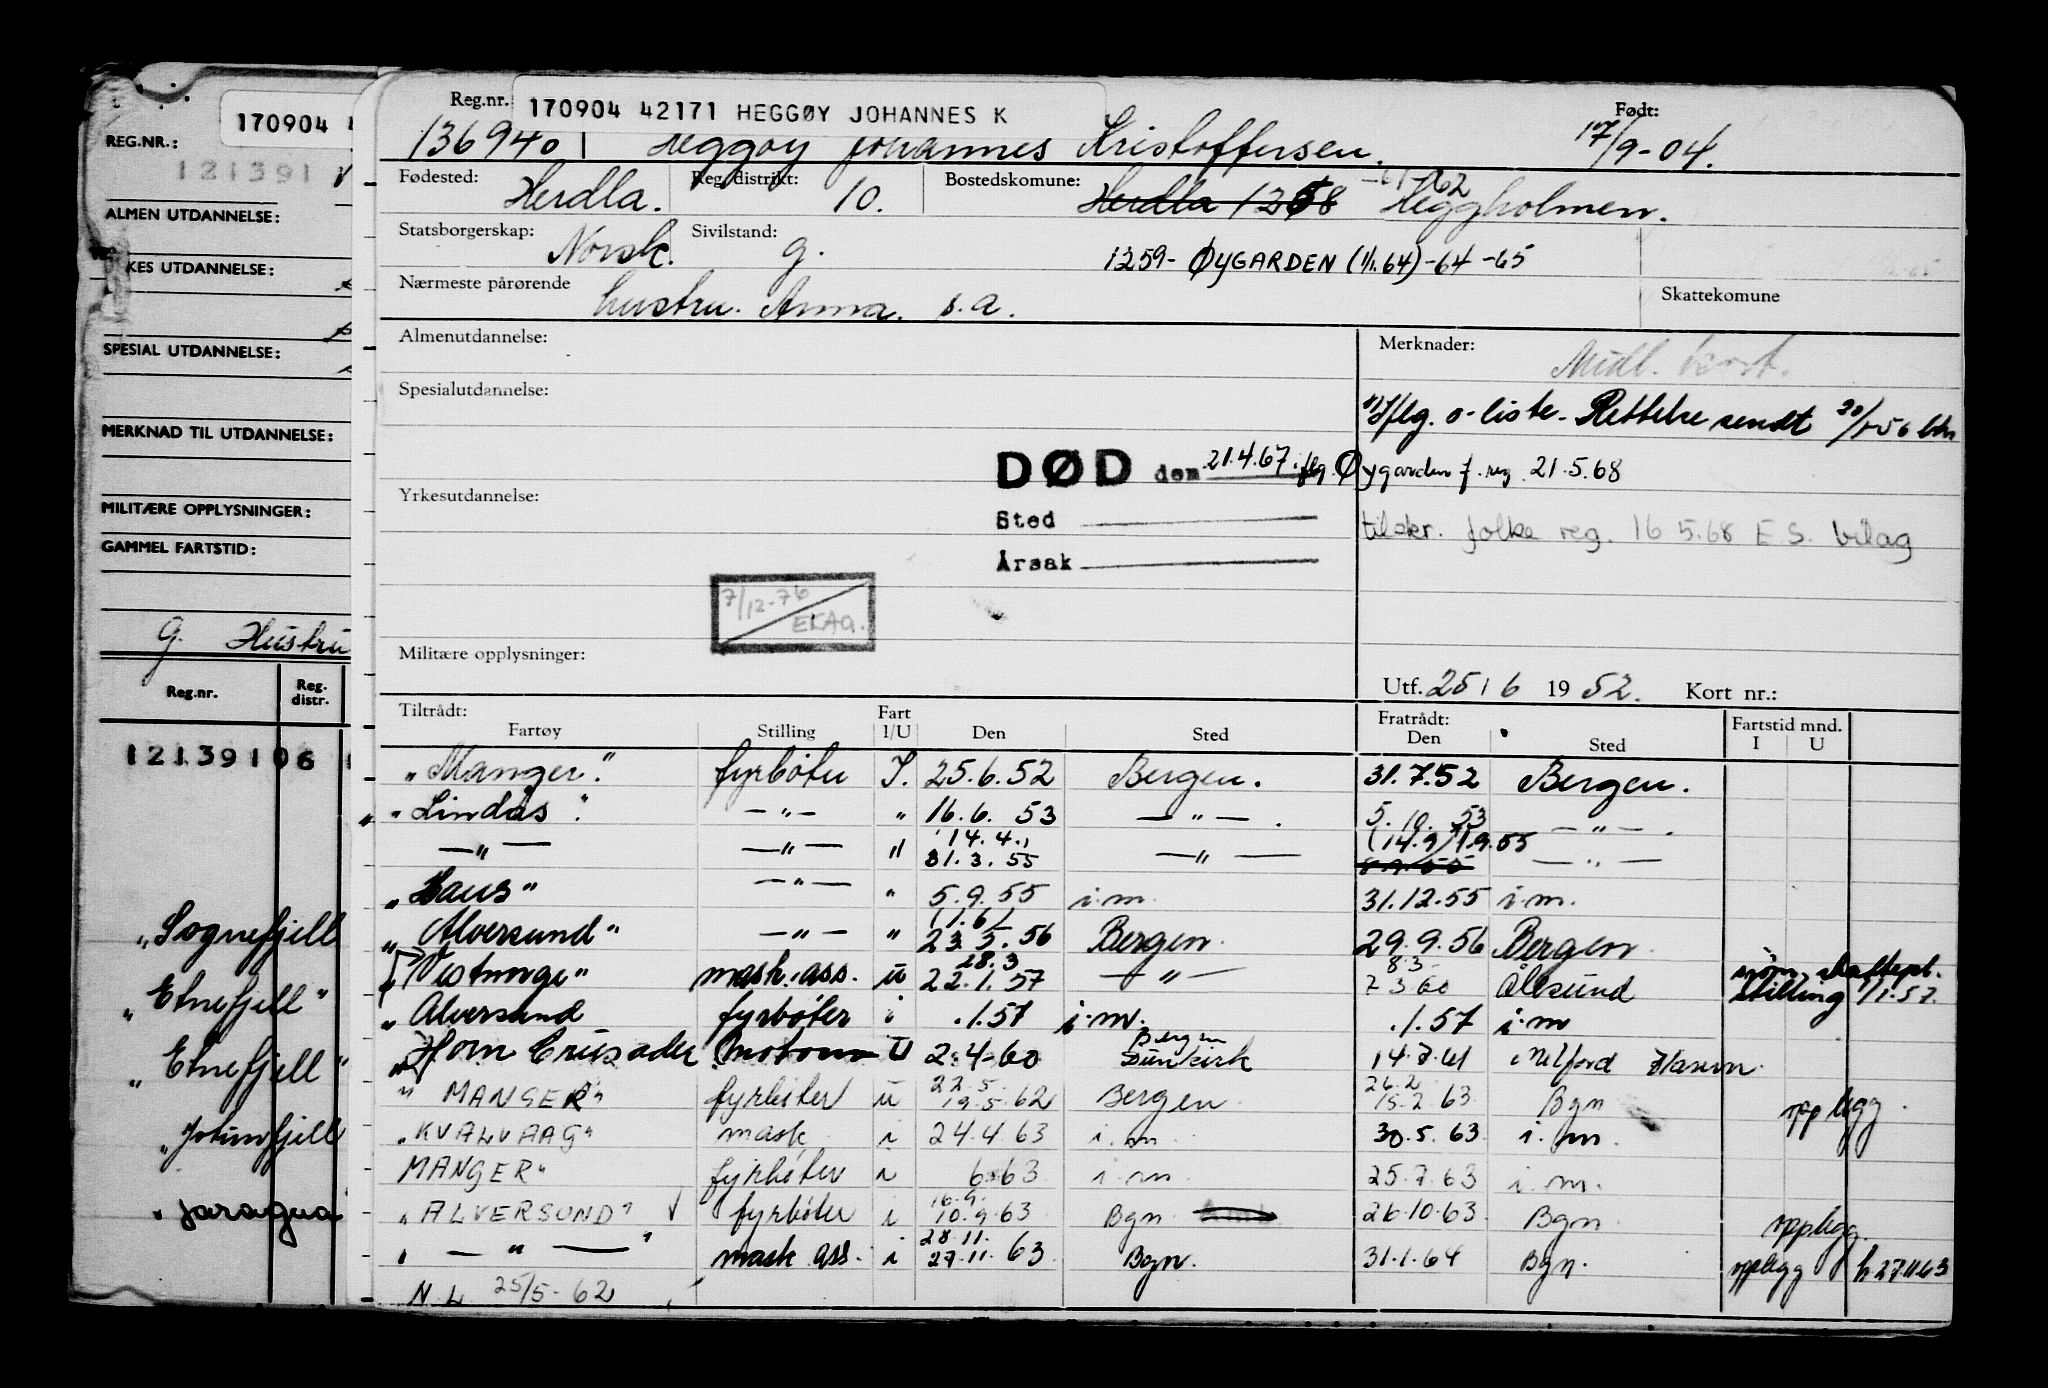 170904
REG.NR.:
121391
ALMEN UTDANNELSE:
KES UTDANNELSE:
SPESIAL UTDANNELSE:
MERKNAD TIL UTDANNELSE:
MILITÆRE OPPLYSNINGER:
GAMMEL FARTSTID:
g. Hustru
Reg.nr. Reg. distr.
121391 06
"Sognefjell
"Etnefjell"
"Etnefjell"
"Jotunfjell
"Jaragua
Reg.nr. 170904 42171 HEGGØY JOHANNES K Født:
1369401 Heggøy Johannes Kristoffersen. 17/9-04.
Fødested: Herdla. Reg. distrikt: 10. Bostedskomune: Herdla 1258 -61-62 Heggholmen.
Statsborgerskap: Norsk. Sivilstand: g. 1259- ØYGARDEN (1/1.64)-64-65
Nærmeste pårørende hustru. Anna. s.a. Skattekomune
Almenutdannelse: Merknader: Midl. kort.
Spesialutdannelse: Iflg. o-liste. Rettelse sendt
DØD den 21.4.67. flg. Øygarden f. reg. 21.5.68
Yrkesutdannelse:
Sted tilskr. folke reg. 16 5.68 E S. bilag
Årsak
7/12-76
EKAG.
Militære opplysninger:
Utf. 25/6 1952. Kort nr.:
Tiltrådt: Fart Fratrådt: Fartstid mnd.
Fartøy Stilling I/U Den Sted Den Sted I U
"Manger." fyrbøter I. 25.6.52 Bergen. 31.7.52 Bergen.
"Lindås". —"— " 16.6.53 —"—. 5.10.53 —"—.
—"— —"— " 14.4., 31.3.55 —"— (14.9) 1.9.55 —"—
"Haus" —"— " 5.9.55 i.m. 31.12.55 i.m.
"Alversund" —"— " (1.6) 23.5.56 Bergen. 29.9.56 Bergen.
"Vestnorge" mask.ass. u 28.3 22.1.57 —"— 8.3 7 3 60 Ålesund
stilling 1/1.57.
"Alversund fyrbøter i .1.57 i.m. .1.57 i.m
"Horn Crusader motorm U 2.4-60 Bergen Dunkirk 14.7.61 Milford Haven
" MANGER" fyrbøter u 22.5. 19.5.62 Bergen 26.2 15.2.63 Bgn opplegg.
"KVALVAAG" mask i 24.4.63 i.m. 30.5.63 i.m.
MANGER" fyrbøter i 6 63 i.m. 25.7.63 i.m.
"ALVERSUND" fyrbøter i 16.9. 10.9.63 Bgn 26.10.63 Bgn opplegg.
" —"— " mask ass. i 28.11. 27.11.63 Bgn. 31.1.64 Bgn. opplegg fr 27/11 63
N.L 25/5-62